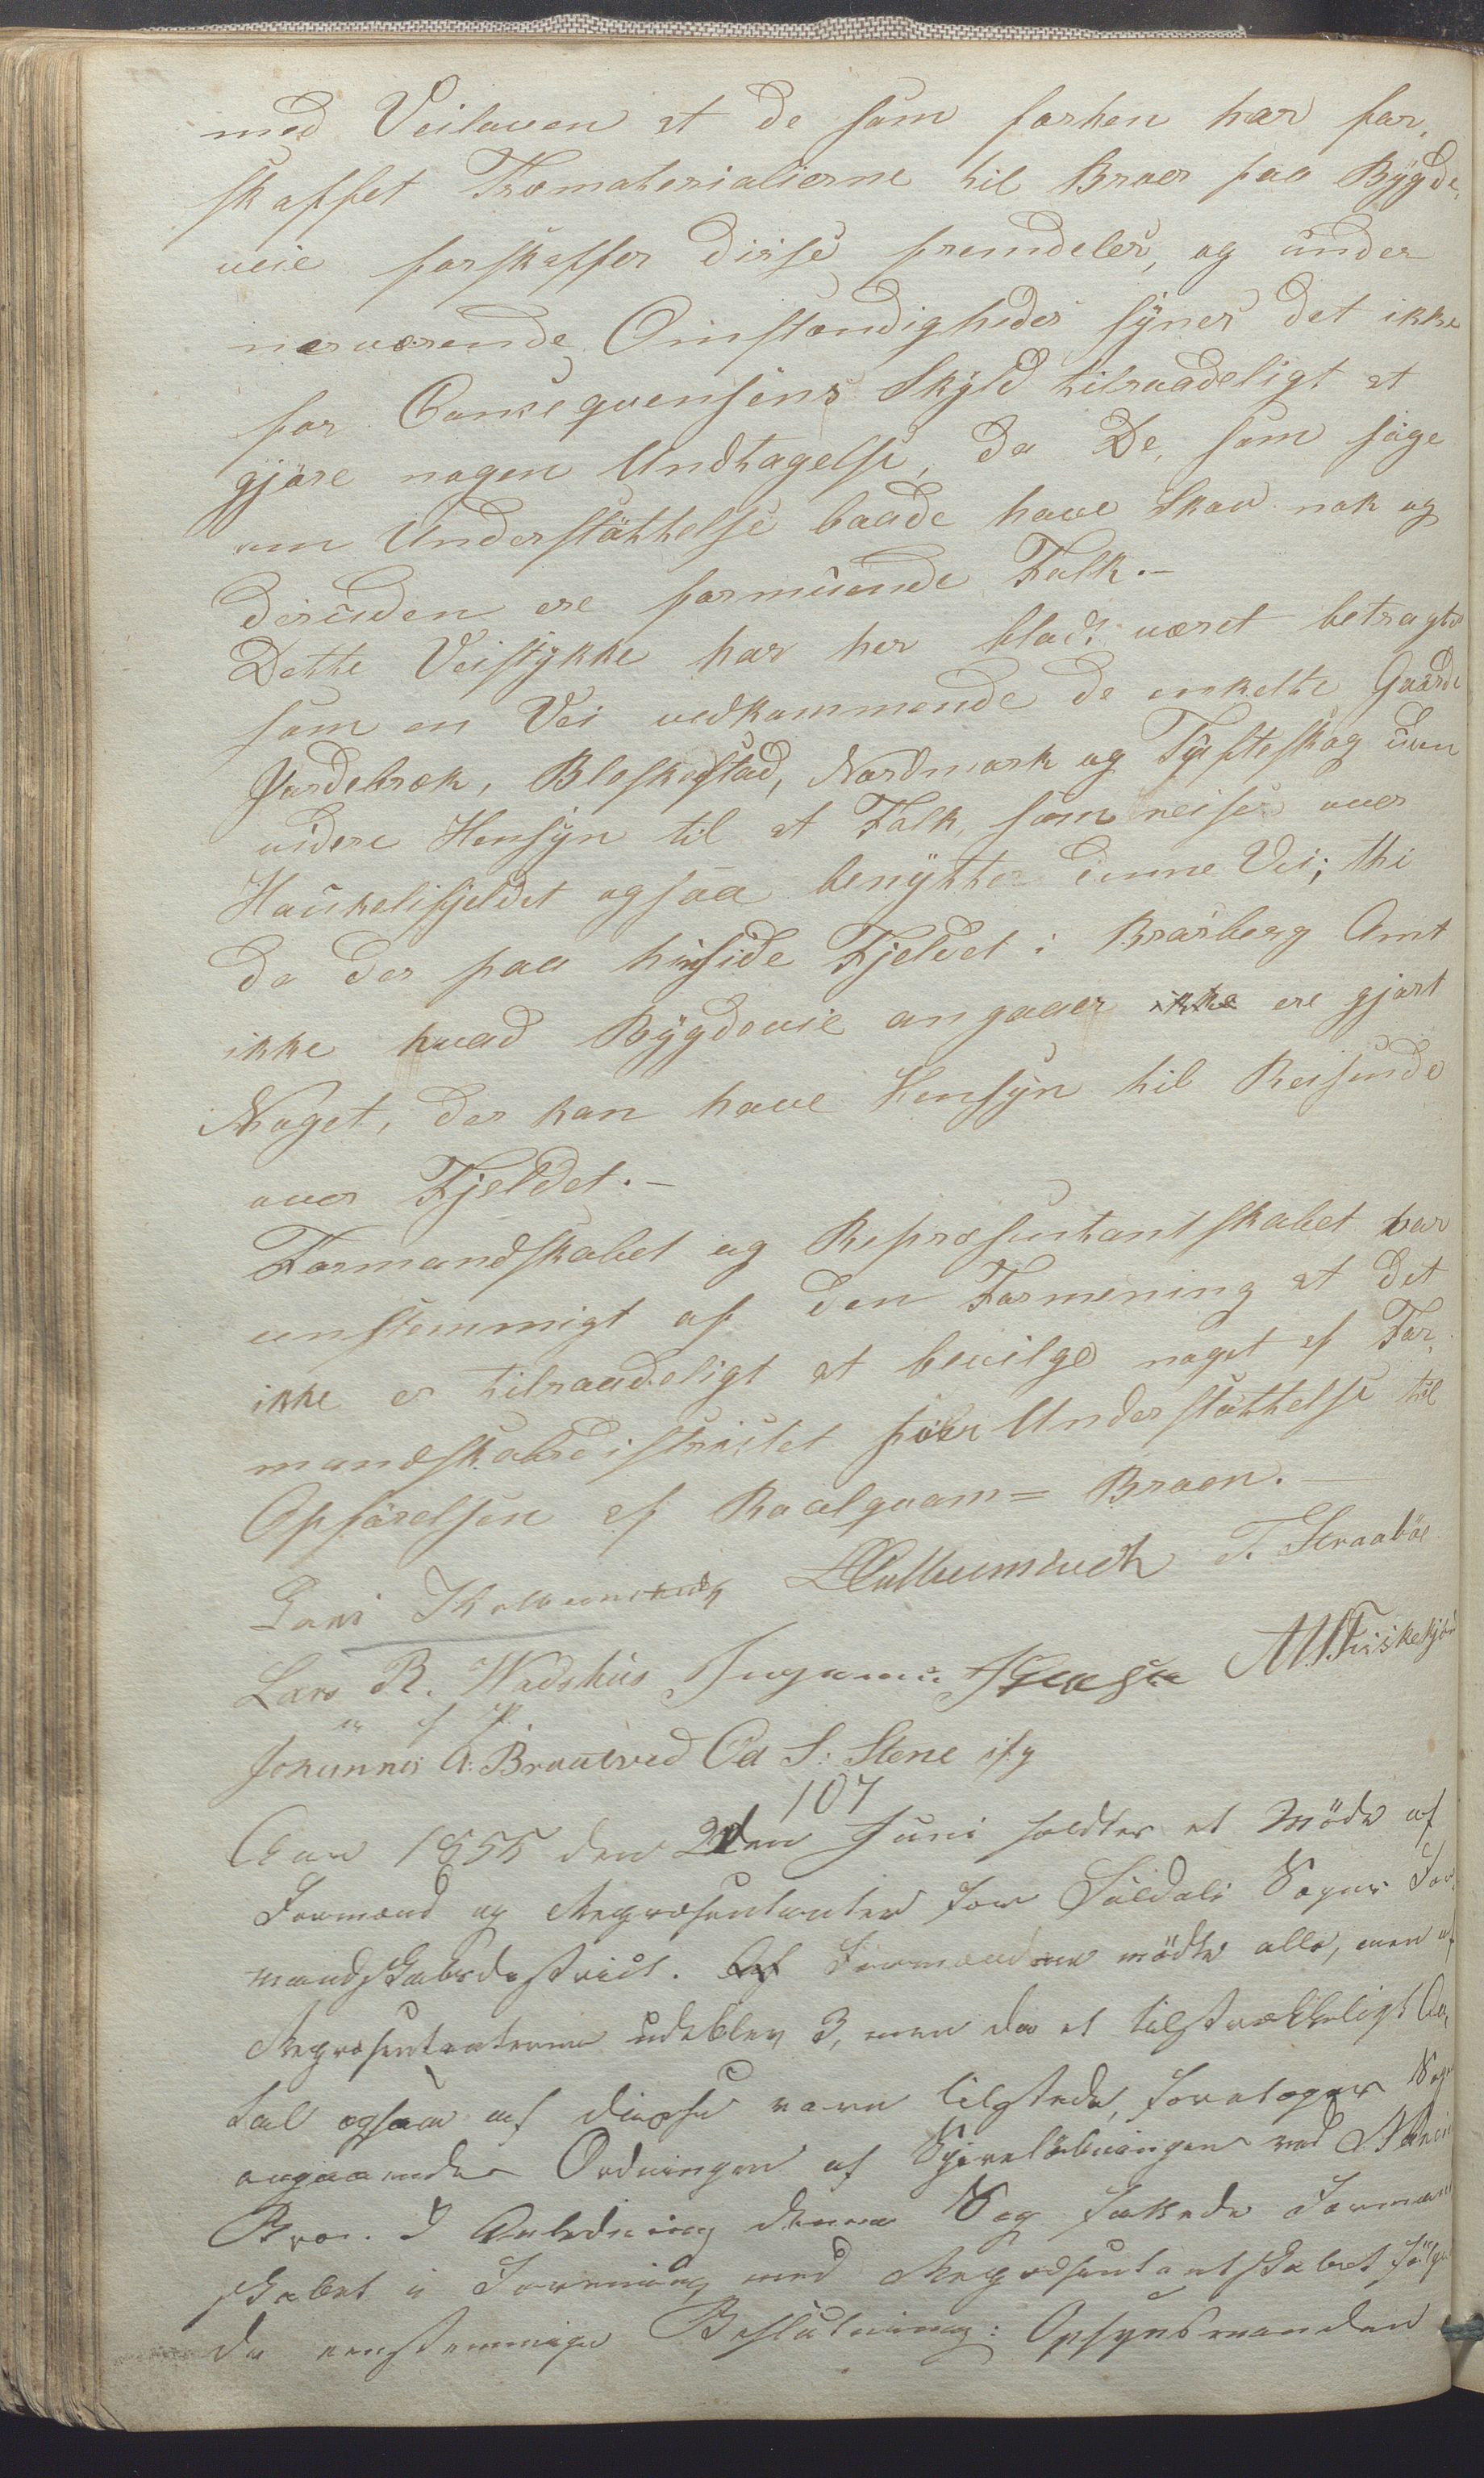 med Veiloven at de som forhen har for-
skaffet Træmaterialierne til Broer paa Bygde-
veie forskaffer disse fremdeles, og under
nærværende Omstændigheder synes det ikke
for Consequensens Skyld tilraadeligt at
gjøre nogen Undtagelse, da De, som søge
om Understøttelse baade have Skov nok og
desuden ere formuende Folk.-
Dette Veistykke har her blodt været betragtet
som en Vei vedkommende de enkelte Gaarde
Jordebræk, Bleskestad, Nordmork og Tufteskog uden
videre Hensyn til at Folk, som reiser over
Haukelifjeldet ogsaa benytter denne Vei; thi
da der paa hinside Fjeldet i Bratsberg Amt
ikke hvad Bygdeveie angaaer ikke ere gjort
Noget, der kan have Hensyn til Reisende
over Fjeldet.-
Formandskabet og Repræsentantskabet var
eenstemmigt af den Formening at det
ikke er tilraadeligt at bevilge noget af For-
mandskabsdistrictet som Understøttelse til
Opførelsen af Roalqvam= Broen.-
Lars T. Straabøe
Lars R. Wadshus
m f P.
Johannes A. Brautved Od S: Stene ify
107
Aar 1855 den 2den Juni holdtes et Møde af
Formænd og Repræsentanter for Suldals Sogns For-
mandskabsdistrict. Af Formændene mødte alle, men af
Repræsentanterne udeblev 3, men da et tilstrækkeligt An-
tal ogsaa af disse vare tilstede, foretoges Sagen
angaaende Ordningen af ved
Bro. I Anledning denne Sag fattede Formand-
skabet i Forening med Repræsentantskabet følgen-
de eenstemmige Beslutning: Opsynsmanden